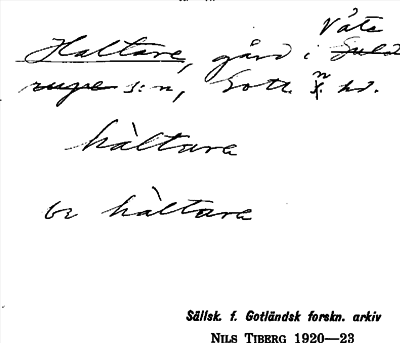 Väte
Haltare, gård i
s:n, Gotl. n. hd.
hàltare
br hàltare
Sällsk. f. Gotländsk forskn. arkiv
NILS TIBERG 1920—23